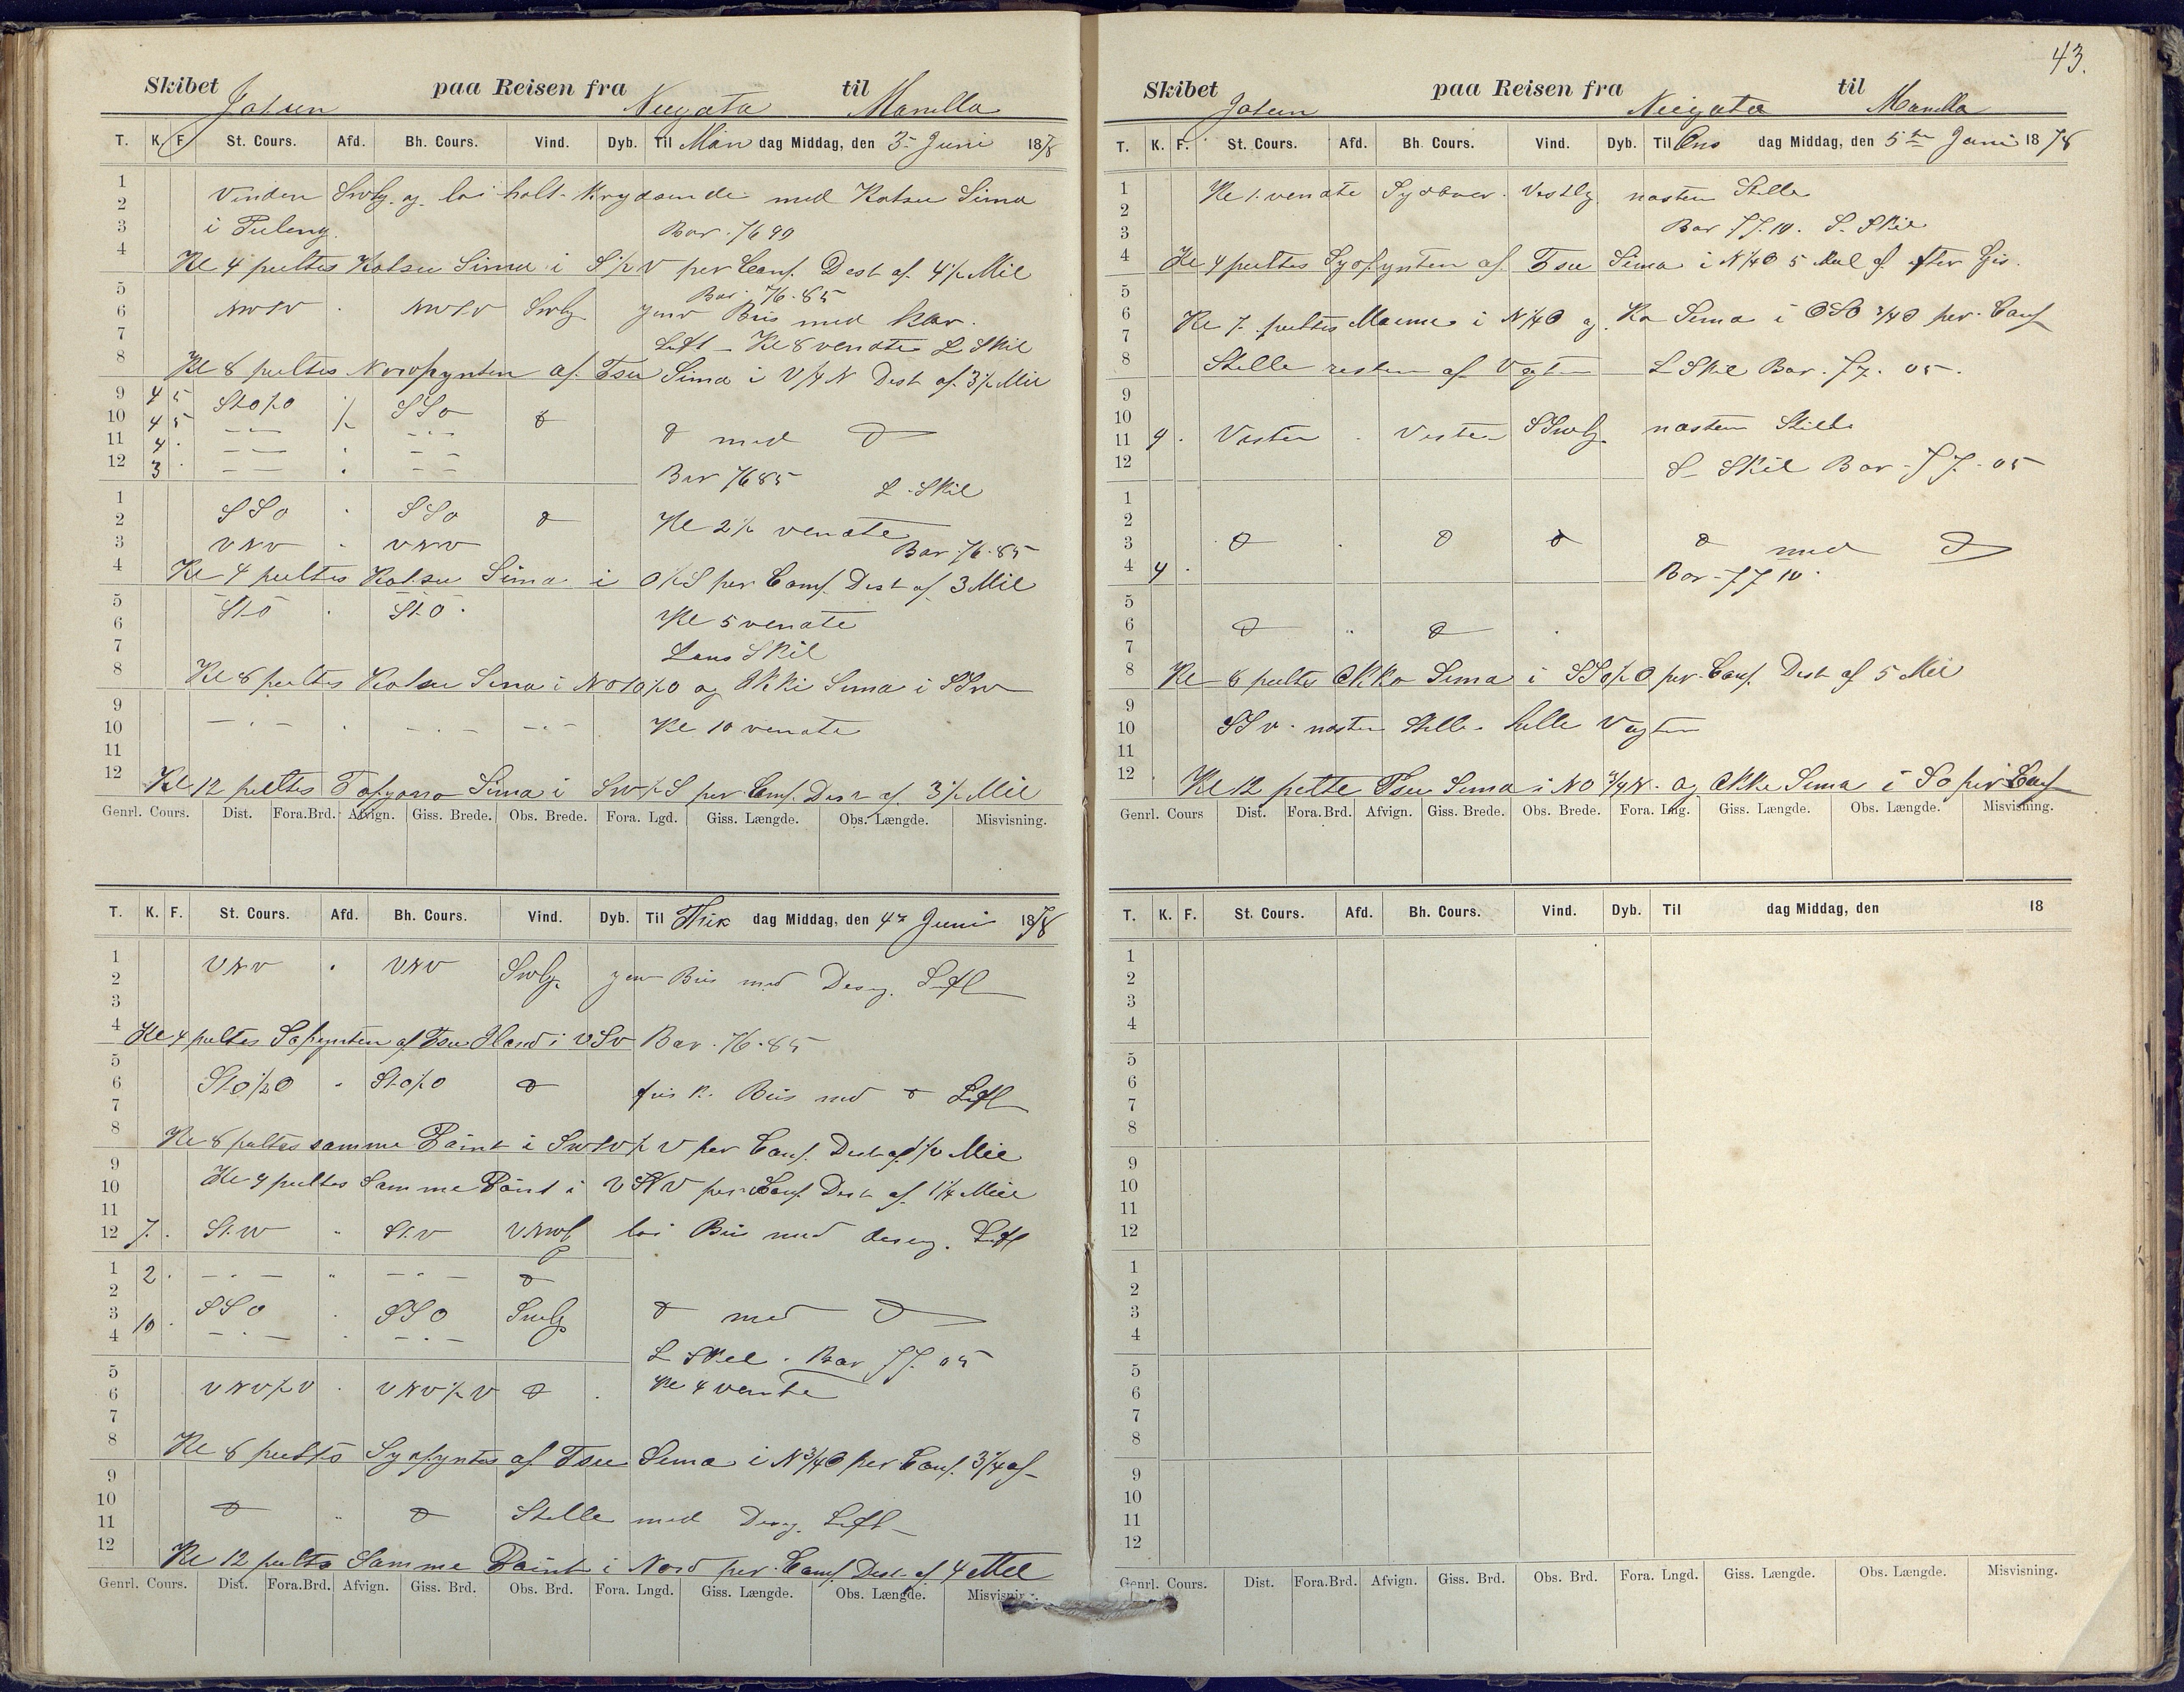 Skibet Johsen paa Reisen fra Niegata til Manilla
T. K. F. St. Cours. Afd. Bh. Cours. Vind. Dyb. Til Man dag Middag, den 3- Juni 1878
1
2 Vinden Swlg. og løi holt Krydsende med Katsu Sima
3 i Bar. 76 90
4 Kl 4 peiltes Katsu Sima i S½V per Comp. Dest af 4½ Mil
5 Bar. 76.85
6 NWtV . NWtV Swlg. Bris med klar
7 Luft - Kl 8 vendte L Skil
8 Kl 8 peiltes Nordpynten af Tsu Sima i V¼N Dest af 3½ Mil
9 4 5 StO½O ½ SSO
10 4 5 - " - - " -
11 4 . - " - . - " - d med d
12 3 . - - . - - Bar 76 85 L. Skil
1
2 SSO . SSO d Kl 2½ vendte
3 VNV . VNV Bar 76.85
4 Kl 4 peiltes Katsu Sima i O½S per Comp. Dest af 3 Mil
5 StO . StO.
6 Kl 5 vendte
7 Lens Skil
8 Kl 8 peiltes Katsu Sima i NOtO½O og Okki Sima i SSW
9
10 - . - . - . - - . - Kl 10 vendte
11
12 Kl. 12 peiltes Sima i SW½S per Comp. Dest af 3½ Mil
Genrl. Cours. Dist. Fora.Brd. Afvign. Giss. Brede. Obs. Brede. Fora. Lgd. Giss. Længde. Obs. Længde. Misvisning.
T. K. F. St. Cours. Afd. Bh. Cours. Vind. Dyb. Til Tirs dag Middag, den 4de Juni 1878
1 VNV . VNV Swlg. Bris med Luft
2
3
4 Kl 4 peiltes Sopynten af Tsu Iland i VSV Bar. 76.85
5
6 StO½O " StO½O d frisk. Bris med d Luft
7
8 Kl 8 peiltes samme Point i SWtV½V per Comp. Dest af Mil
9
10 Kl 9 peiltes Samme Point i per Comp. Dest af 1¼ Mil
11
12 7. . St.W " St.V VNWl løi Bris med Luft
1 2 . - . - " - . - d
2
3 10 . SSO . SSO Swlg d med d
4 - . - . - . - L Skil. Bar 77.05
5 Kl 4 vendte
6 VNV½V . VNV½V d .
7
8 Kl 8 peiltes Sydpynten af Tsu Sima i N¾O per Comp. 3¼ af
9
10 d " d Stille med Luft
11
12 Kl 12 peiltes Samme Point i Nord per. Comp Dest af 4 Mil
Genrl. Cours. Dist. Fora.Brd. Afvign. Giss. Brd. Obs. Brd. Fora. Lngd. Giss. Længde. Obs. Længde. Misvisnin
43.
Skibet Johsen paa Reisen fra Niegata til Manilla
T. K. F. St. Cours. Afd. Bh. Cours. Vind. Dyb. Til Ons dag Middag, den 5te Juni 1878
1 Kl 1. vendte Sydover. Vestlg. næsten Stille
2
3 Bar 77.10. S. Skil
4 Kl 4 peiltes Sydpynten af Tsu Sima i N¼O 5 Mil af efter Gis.
5
6 Kl 7. peiltes i N¼O og Ko Sima i OSO ¾O per. Comp
7
8 Stille resten af Vagten L Skil Bar. 77. 05.
9
10
11 4 . Vesten . Vesten SSwlg. næsten Stille
12 S Skil Bar. 77. 05
1
2
3 d . d d d med d
4 4 . Bar. 77 10.
5
6 d " d .
7
8 Kl 8 peiltes Okko Sima i SSO½O per. Comp. Dest af 5 Mil
9
10 SSV. næsten Stille. hele Vagten
11
12 Kl 12 peilte Tsu Sima i NO ¾N. og Okke Sima i SO per Comp
Genrl. Cours Dist. Fora.Brd. Afvign. Giss. Brede. Obs. Brede. Fora. Lng. Giss. Længde. Obs. Længde. Misvisning.
T. K. F. St. Cours. Afd. Bh. Cours. Vind. Dyb. Til dag Middag, den 18
1
2
3
4
5
6
7
8
9
10
11
12
1
2
3
4
5
6
7
8
9
10
11
12
Genrl. Cours. Dist. Fora.Brd. Afvign. Giss. Brd. Obs. Brd. Fora. Lngd. Giss. Længde. Obs. Længde. Misvisning.